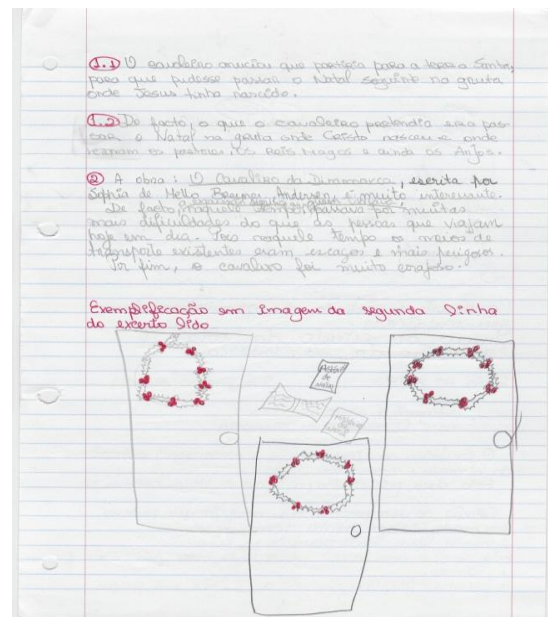 1.1 O cavaleiro anuciou que partiria para a terra Santa,
para que pudesse passar o Natal seguinte na gruta
onde Jesus tinha nascido.
1.2 De facto, o que o cavaleiro pretendia era pas-
sar o Natal na gruta onde Cristo nasceu e onde
rezaram os pastores, os Reis Magos e ainda os Anjos.
2 A obra: O Cavaleiro da Dinamarca, escrita por
Sophia de Mello Breyner Andersen é muito interessante.
De facto, naquele tempo, passava por muitas
mais dificuldades do que as pessoas que viajam
hoje em dia. naquele tempo os meios de
transporte existentes eram escaços e mais perigosos.
Por fim, o cavaleiro foi muito corajoso.
Exemplificação em imagem da segunda linha
do excerto lido